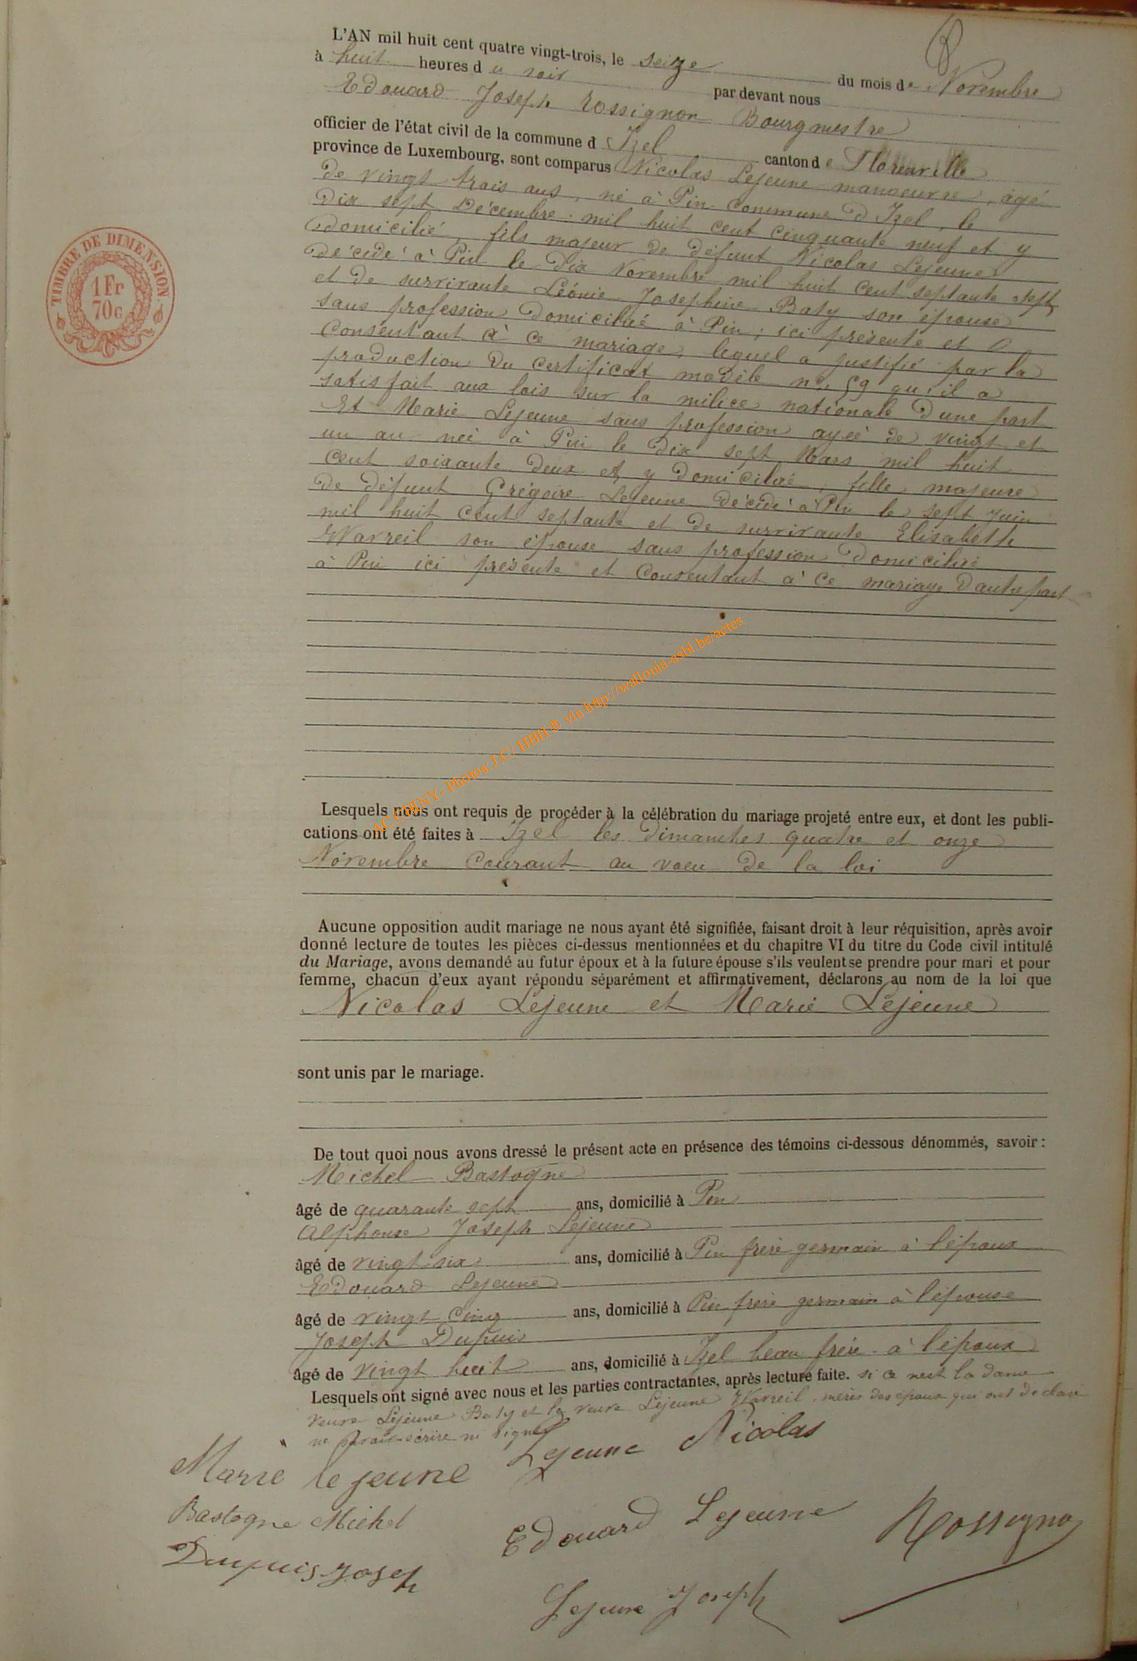 8
L'AN mil huit cent quatre vingt-trois, le seize du mois de Novembre
à huit heures du soir par devant nous
Edouard Joseph Rossignon Bourgmestre
officier de l'état civil de la commune d Izel canton de Florenville
province de Luxembourg, sont comparus Nicolas Lejeune manoeuvre, âgé
de vingt trois ans, né à Pin commune d'Izel, le
dix sept Décembre mil huit cent cinquante neuf et y
domicilié, fils majeur de défunt Nicolas Lejeune
décédé à Pin le dix Novembre mil huit cent septante sept
et de survivante Léonie Josephine Baty son épouse
sans profession domiciliée à Pin, ici présente et
consentant à ce mariage, lequel a justifié par la
production du certificat modèle n° 59 qu'il a
satisfait aux lois sur la milice nationale d'une part
Et Marie Lejeune sans profession agée de vingt et
un an née à Pin le dix sept Mars mil huit
cent soixante deux et y domiciliée, fille majeure
de défunt Grégoire Lejeune décédé à Pin le sept Juin
mil huit cent septante et de survivante Elisabeth
Warzeil son épouse sans profession domiciliée
à Pin ici présente et consentant à ce mariage d'autre part
Lesquels nous ont requis de procéder à la célébration du mariage projeté entre eux, et dont les publi-
cations ont été faites à Izel les dimanches quatre et onze
Novembre courant au voeu de la loi
Aucune opposition audit mariage ne nous ayant été signifiée, faisant droit à leur réquisition, après avoir
donné lecture de toutes les pièces ci-dessus mentionnées et du chapitre VI du titre du Code civil intitulé
du Mariage, avons demandé au futur époux et à la future épouse s'ils veulent se prendre pour mari et pour
femme, chacun d'eux ayant répondu séparément et affirmativement, déclarons au nom de la loi que
Nicolas Lejeune et Marie Lejeune
sont unis par le mariage.
De tout quoi nous avons dressé le présent acte en présence des témoins ci-dessous dénommés, savoir :
Michel Bastogne
âgé de quarante sept ans, domicilié à Pin
Alphonse Joseph Lejeune
âgé de vingt six ans, domicilié à Pin frère germain à l'époux
Edouard Lejeune
âgé de vingt cinq ans, domicilié à Pin frère germain à l'épouse
Joseph Dupuis
âgé de vingt huit ans, domicilié à Izel beau frère à l'époux
Lesquels ont signé avec nous et les parties contractantes, après lecture faite. si ce n'est la dame
veuve Lejeune Baty et la veuve Lejeune Warzeil, mères des époux qui ont déclaré
ne savoir écrire ni signer
Lejeune Nicolas
Marie lejeune
Bastogne Michel
Edouard Lejeune
Rossignon
Dupuis Josep
Lejeune Joseph
TIMBRE DE DIMENSION
1 Fr
70c
via http://wallonia-asbl.be/actes